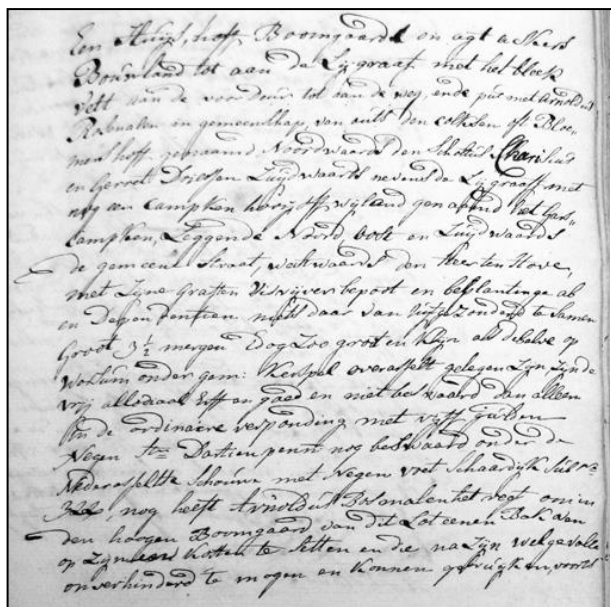 Een Huijs, hoff, Boomgaard en agt ackers
Bouwland tot aan de Lijgraaf met het block
velt van de voordeur tot aan de weg, en de put met Arnoldus
in gemeenschap, van outs den Colksen oft Bloe-
mens hoff genaamd Noordwaards den Scholtus Charilius
en Gerret Driessen Zuijdwaarts nevens de Lijgraaff met
nog een Campken weijland genaamd het Gars-
campken, Leggende Noord, oost en Zuijdwaards
de gemeene straat, westwaards den Heer ten Hove,
met zijne graften Visvijver bepoot en beplantinge ab
en Dependentien niets daar van uijtgezonderd te samen
Groot 3 1/2 mergen Edog Zoo groot en klijn als deselve op
onder gem: Kerspel overasselt gelegen Zijn Zijnde
vrij allodiaal Erff en goed en niet beswaard dan alleen
in de ordinaire verponding met vijff gulden
Negen st: Dartien penn: nog beswaard onder de
Nederasseltse Schouw met Negen voet Schaardijk sub N:
322, nog heeft Arnoldus het regt om in
den hoogen Boomgaard van dit Lot eenen Bak van
op Zijn kosten te setten en die na Zijn welgevallen
onverhinderd te mogen en konnen gebruijken, voorts